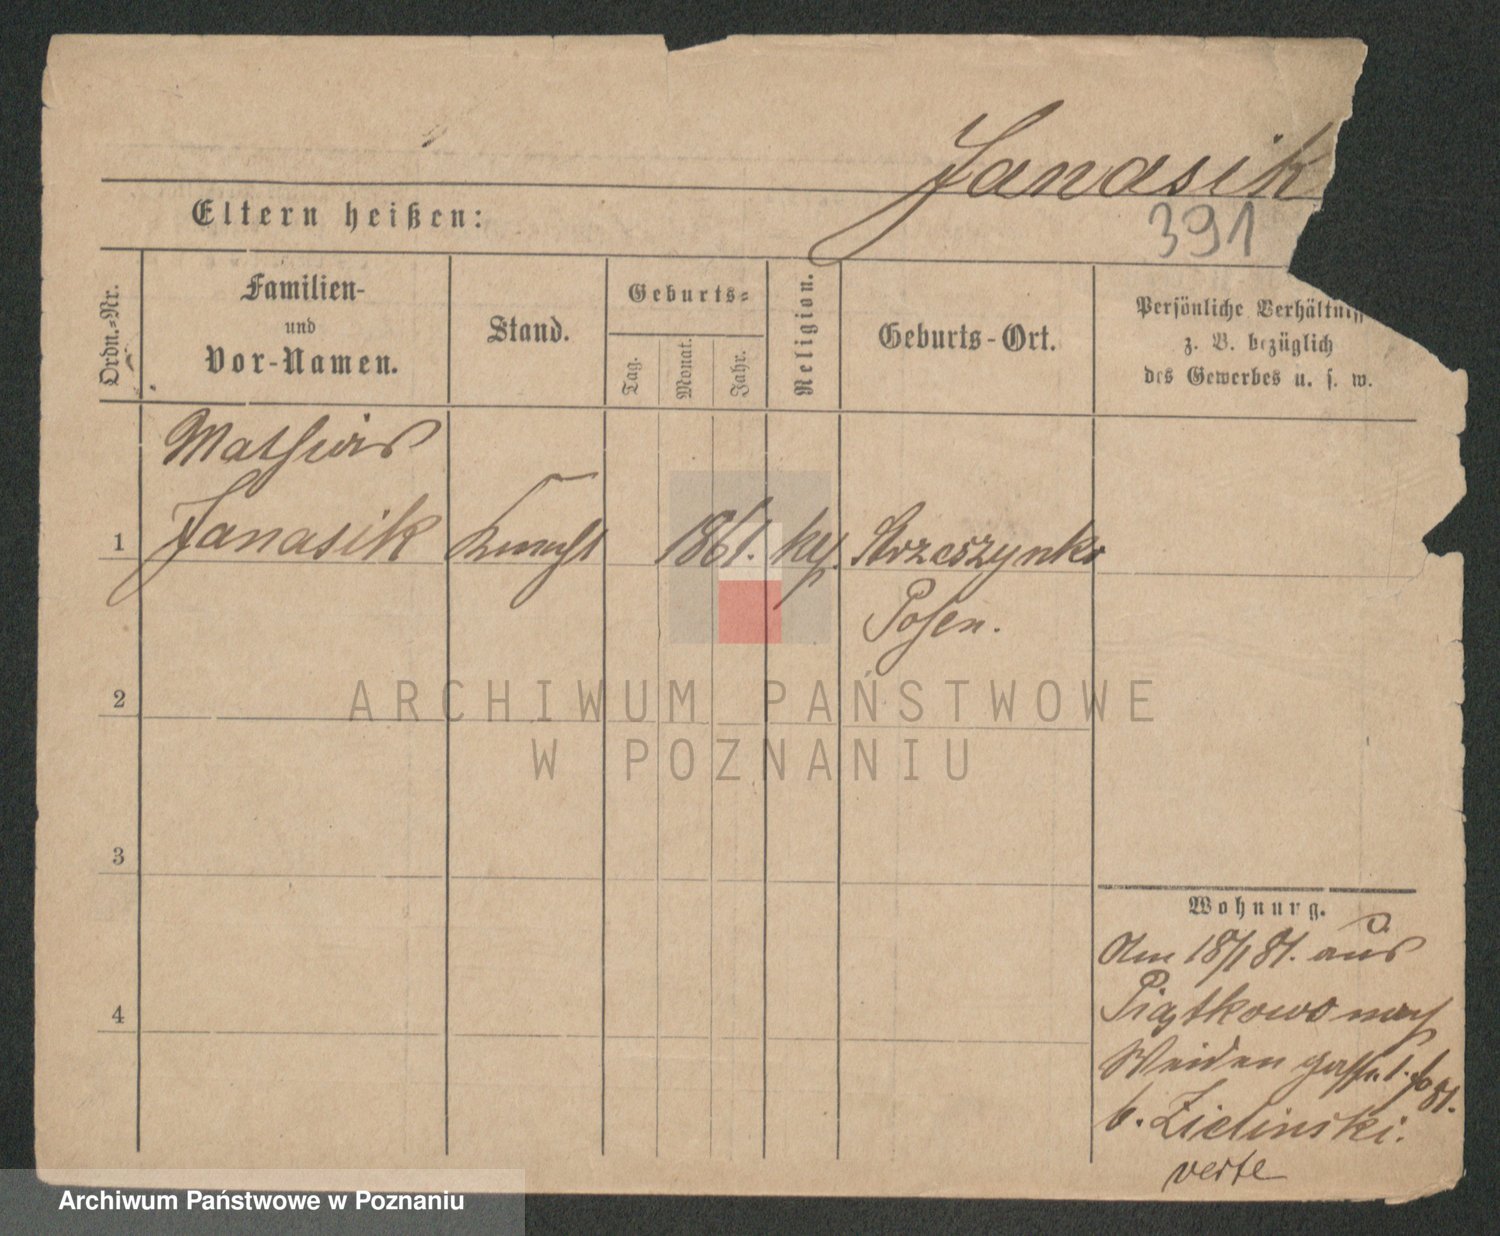 Janasik
391
Eltern heißen:
Ordn.-Nr.
Familien-
und
Vor-Namen.
Stand.
Geburts-
Tag.
Monat.
Jahr.
Religion.
Geburts-Ort.
Persönliche Verhältniss
z. B. bezüglich
des Gewerbes u. s. w.
Mathias
1 Janasik Knecht 1861. kg. Strzeszynko
Posen.
2
3
4
ARCHIWUM PAŃSTWOWE
W POZNANIU
Wohnung.
Am 18/1 81. aus
Piątkowo nach
Weidengasse 1. 81.
b. Zielinski.
verte
Archiwum Państwowe w Poznaniu